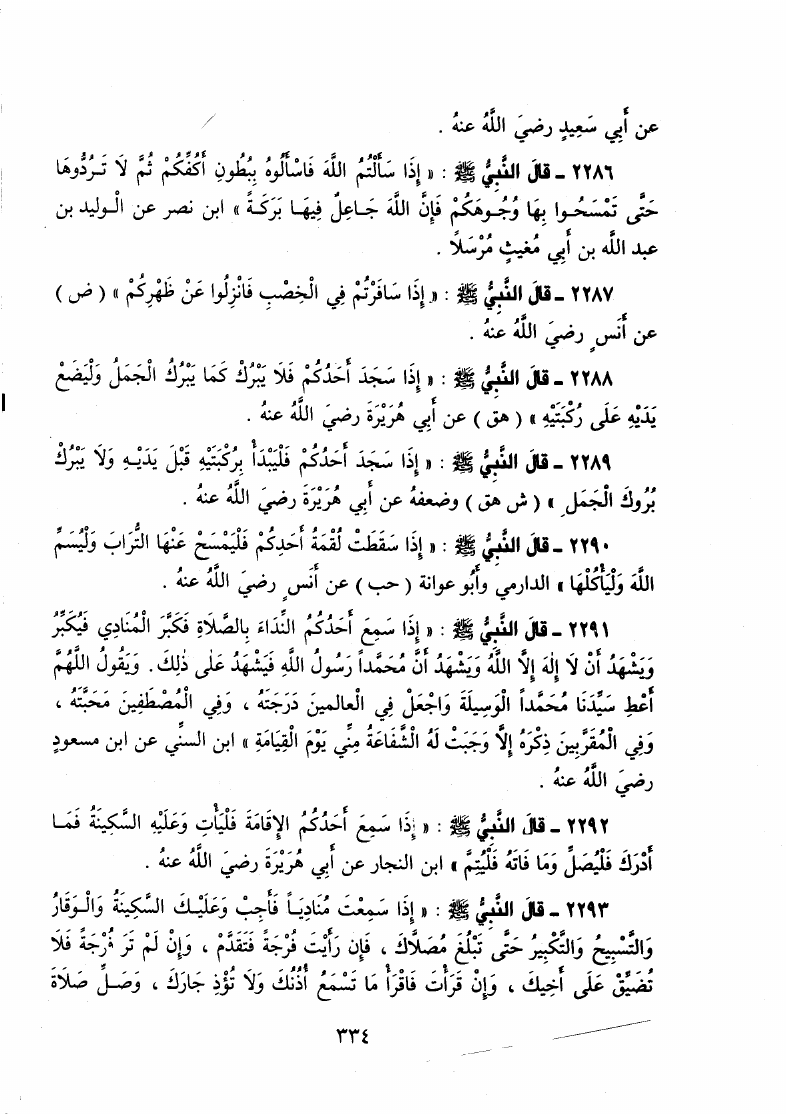 عن أَبِي سَعِيدٍ رضيَ اللَّهُ عنهُ .
٢٢٨٦ ـ قالَ النَّبِيُّ ﷺ : « إِذَا سَأَلْتُمُ اللَّهَ فَاسْأَلُوهُ بِبُطُونِ أَكُفِّكُمْ ثُمَّ لَا تَرُدُّوهَا
حَتَّى تَمْسَحُوا بِهَا وُجُوهَكُمْ فَإِنَّ اللَّهَ جَاعِلٌ فِيهَا بَرَكَةً » ابن نصر عن الْوليد بن
عبد الله بن أَبي مُغيثٍ مُرْسَلًا .
٢٢٨٧ ـ قالَ النَّبِيُّ ﷺ : « إِذَا سَافَرْتُمْ فِي الْخِصْبِ فَانْزِلُوا عَنْ ظَهْرِكُمْ » ( ض )
عن أَنسٍ رضيَ اللَّهُ عنهُ .
٢٢٨٨ ـ قالَ النَّبِيُّ ﷺ : « إِذَا سَجَدَ أَحَدُكُمْ فَلَا يَبْرُكْ كَمَا يَبْرُكُ الْجَمَلُ وَلْيَضَعْ
يَدَيْهِ عَلَى رُكْبَتَيْهِ » ( هق ) عن أَبِي هُرَيْرَةَ رضيَ اللَّهُ عنهُ .
٢٢٨٩ ـ قالَ النَّبِيُّ ﷺ : « إِذَا سَجَدَ أَحَدُكُمْ فَلْيَبْدَأْ بِرُكْبَتَيْهِ قَبْلَ يَدَيْهِ وَلَا يَبْرُكْ
بُرُوكَ الْجَمَلِ » ( ش هق ) وضعفهُ عن أَبِي هُرَيْرَةَ رضيَ اللَّهُ عنهُ .
٢٢٩٠ ـ قالَ النَّبِيُّ ﷺ : « إِذَا سَقَطَتْ لُقْمَةُ أَحَدِكُمْ فَلْيَمْسَحْ عَنْهَا التُّرَابَ وَلْيُسَمِّ
اللَّهَ وَلْيَأْكُلْهَا » الدارمي وأَبُو عوانة ( حب ) عن أَنسٍ رضيَ اللَّهُ عنهُ .
٢٢٩١ ـ قالَ النَّبِيُّ ﷺ : « إِذَا سَمِعَ أَحَدُكُمُ النِّدَاءَ بِالصَّلَاةِ فَكَبَّرَ الْمُنَادِي فَيُكَبِّرُ
وَيَشْهَدُ أَنْ لَا إِلٰهَ إِلَّا اللَّهُ وَيَشْهَدُ أَنَّ مُحَمَّداً رَسُولُ اللَّهِ فَيَشْهَدُ عَلَى ذٰلِكَ . وَيَقُولُ اللَّهُمَّ
أَعْطِ سَيِّدَنَا مُحَمَّداً الْوَسِيلَةَ وَاجْعَلْ فِي العالمينَ دَرَجَتَهُ ، وَفِي الْمُصْطَفِينَ مَحَبَّتَهُ ،
وَفِي الْمُقَرَّبِينَ ذِكْرَهُ إِلَّا وَجَبَتْ لَهُ الشَّفَاعَةُ مِنِّي يَوْمَ الْقِيَامَةِ » ابن السنِّي عن ابن مسعودٍ
رضيَ اللَّهُ عنهُ .
٢٢٩٢ ـ قالَ النَّبِيُّ ﷺ : « إِذَا سَمِعَ أَحَدُكُمُ الإِقَامَةَ فَلْيَأْتِ وَعَلَيْهِ السَّكِينَةُ فَمَا
أَدْرَكَ فَلْيُصَلِّ وَمَا فَاتَهُ فَلْيُتِمَّ » ابن النجار عن أَبِي هُرَيْرَةَ رضيَ اللَّهُ عنهُ .
٢٢٩٣ ـ قالَ النَّبِيُّ ﷺ : « إِذَا سَمِعْتَ مُنَادِيَاً فَأَجِبْ وَعَلَيْكَ السَّكِينَةُ وَالْوَقَارُ
وَالتَّسْبِيحُ وَالتَّكْبِيرُ حَتَّى تَبْلُغَ مُصَلَّاكَ ، فَإِن رَأَيْتَ فُرْجَةً فَتَقَدَّمْ ، وَإِنْ لَمْ تَرَ فُرْجَةً فَلَا
تُضَيِّقْ عَلَى أَخِيكَ ، وَإِنْ قَرَأْتَ فَاقْرَأْ مَا تَسْمَعُ أُذُنُكَ وَلَا تُؤْذِ جَارَكَ ، وَصَلِّ صَلَاةَ
٣٣٤